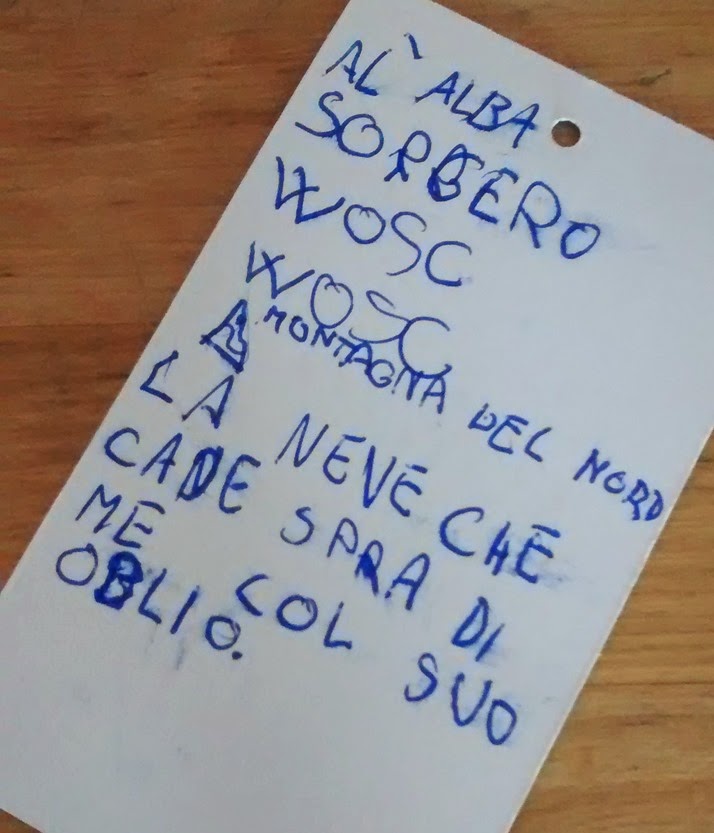 AL` ALBA
SORBERO
WOSC
WOSC
A MONTAGNA DEL NORD
LA NEVE CHE
CADE SPRA DI
ME COL SUO
OBLIO.